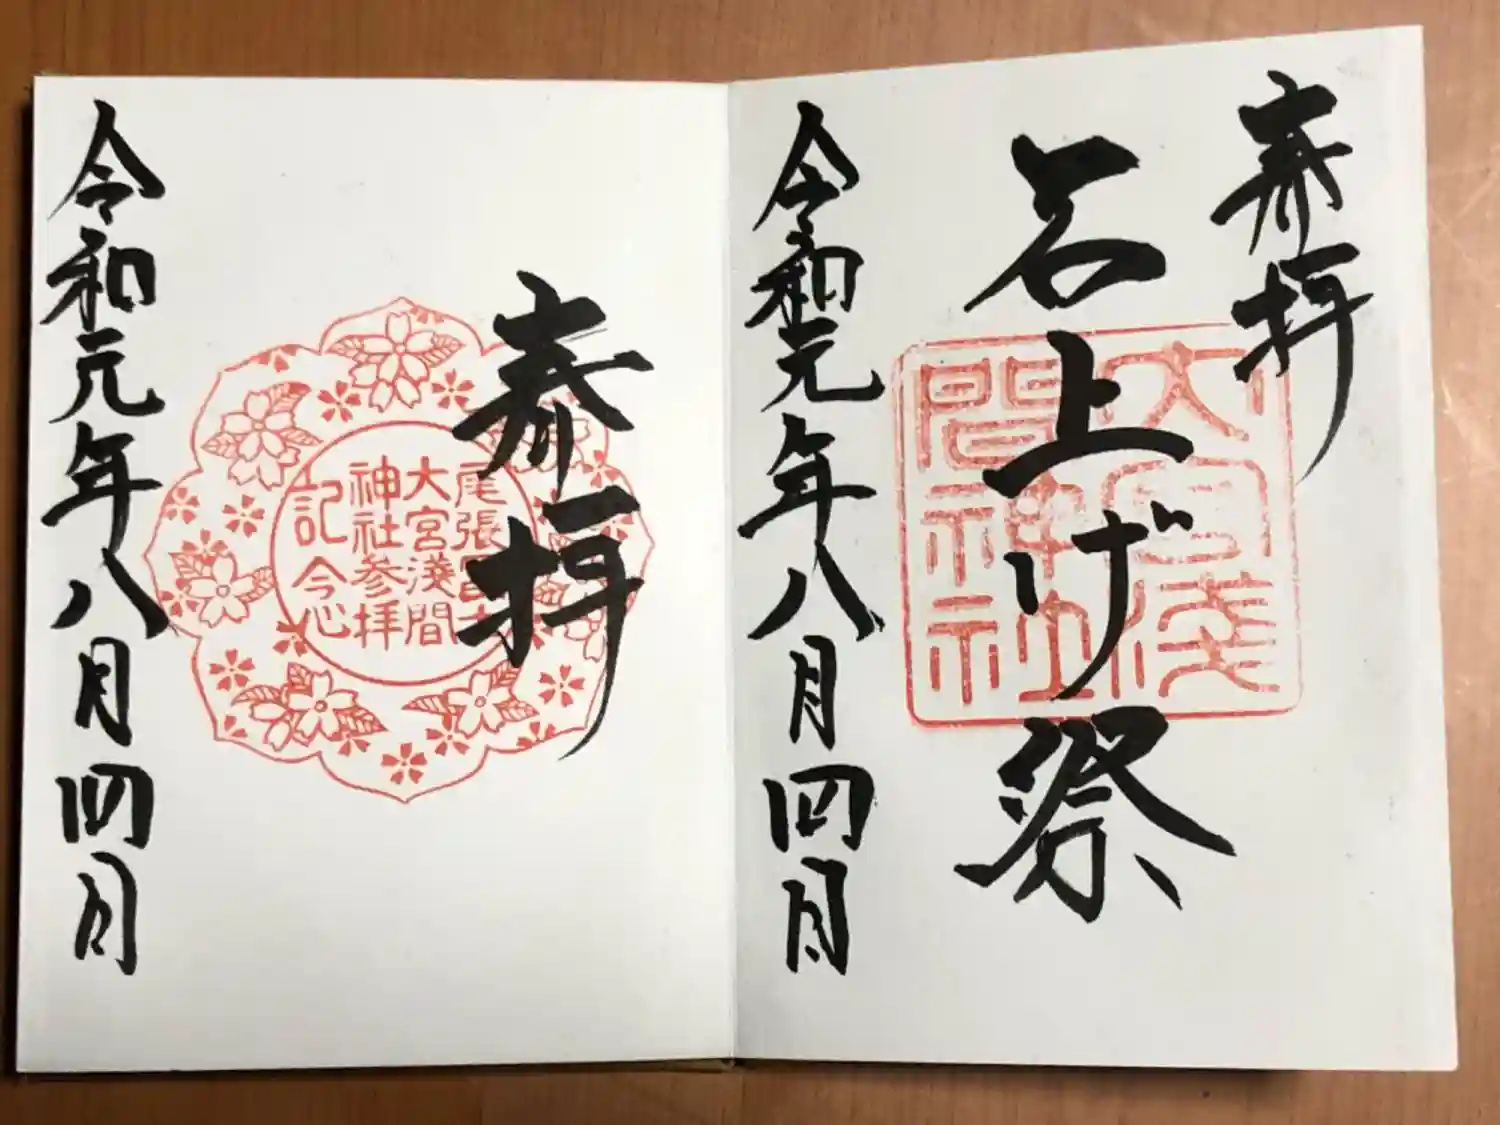 奉拝
石上げ祭
大宮浅
間神社
令和元年八月四日
奉拝
尾張冨士
大宮淺間
神社参拝
記念
令和元年八月四日